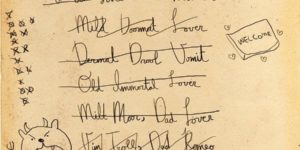 Mild Doormat Lover
Dermal Drool Vomit
Old Immortal Lover
Mill Moors Dad Lover
Dad Romeo
WELCOME